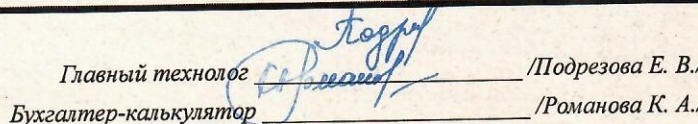 Подрез
Главный технолог Романов /Подрезова Е. В./
Бухгалтер-калькулятор /Романова К. А./